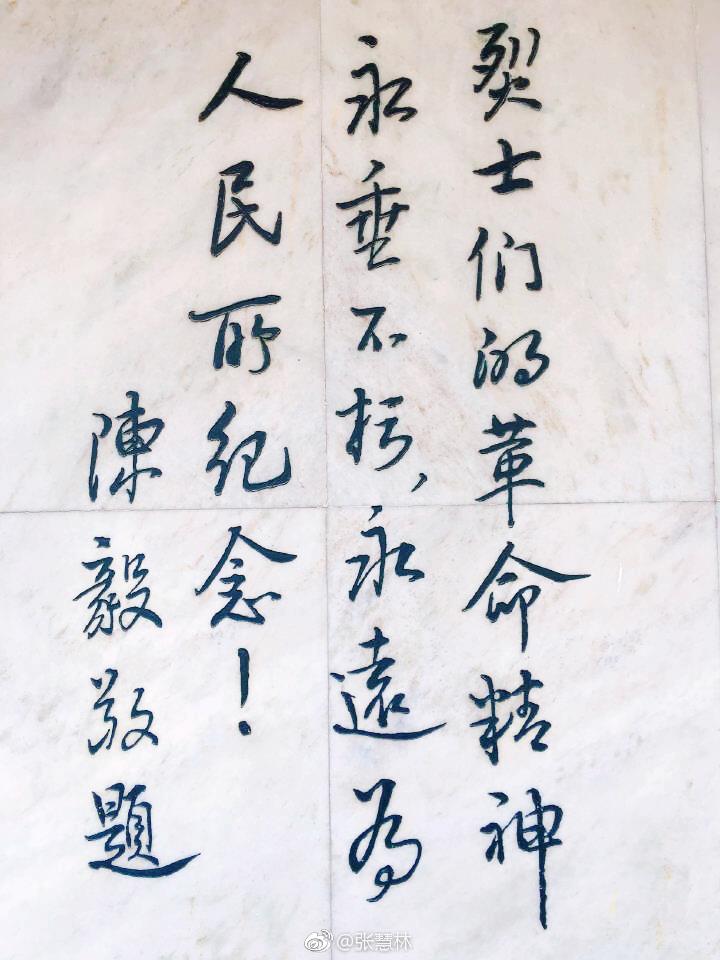 烈士们的革命精神
永垂不朽，永遠为
人民所纪念！
陳毅敬题
@张慧林